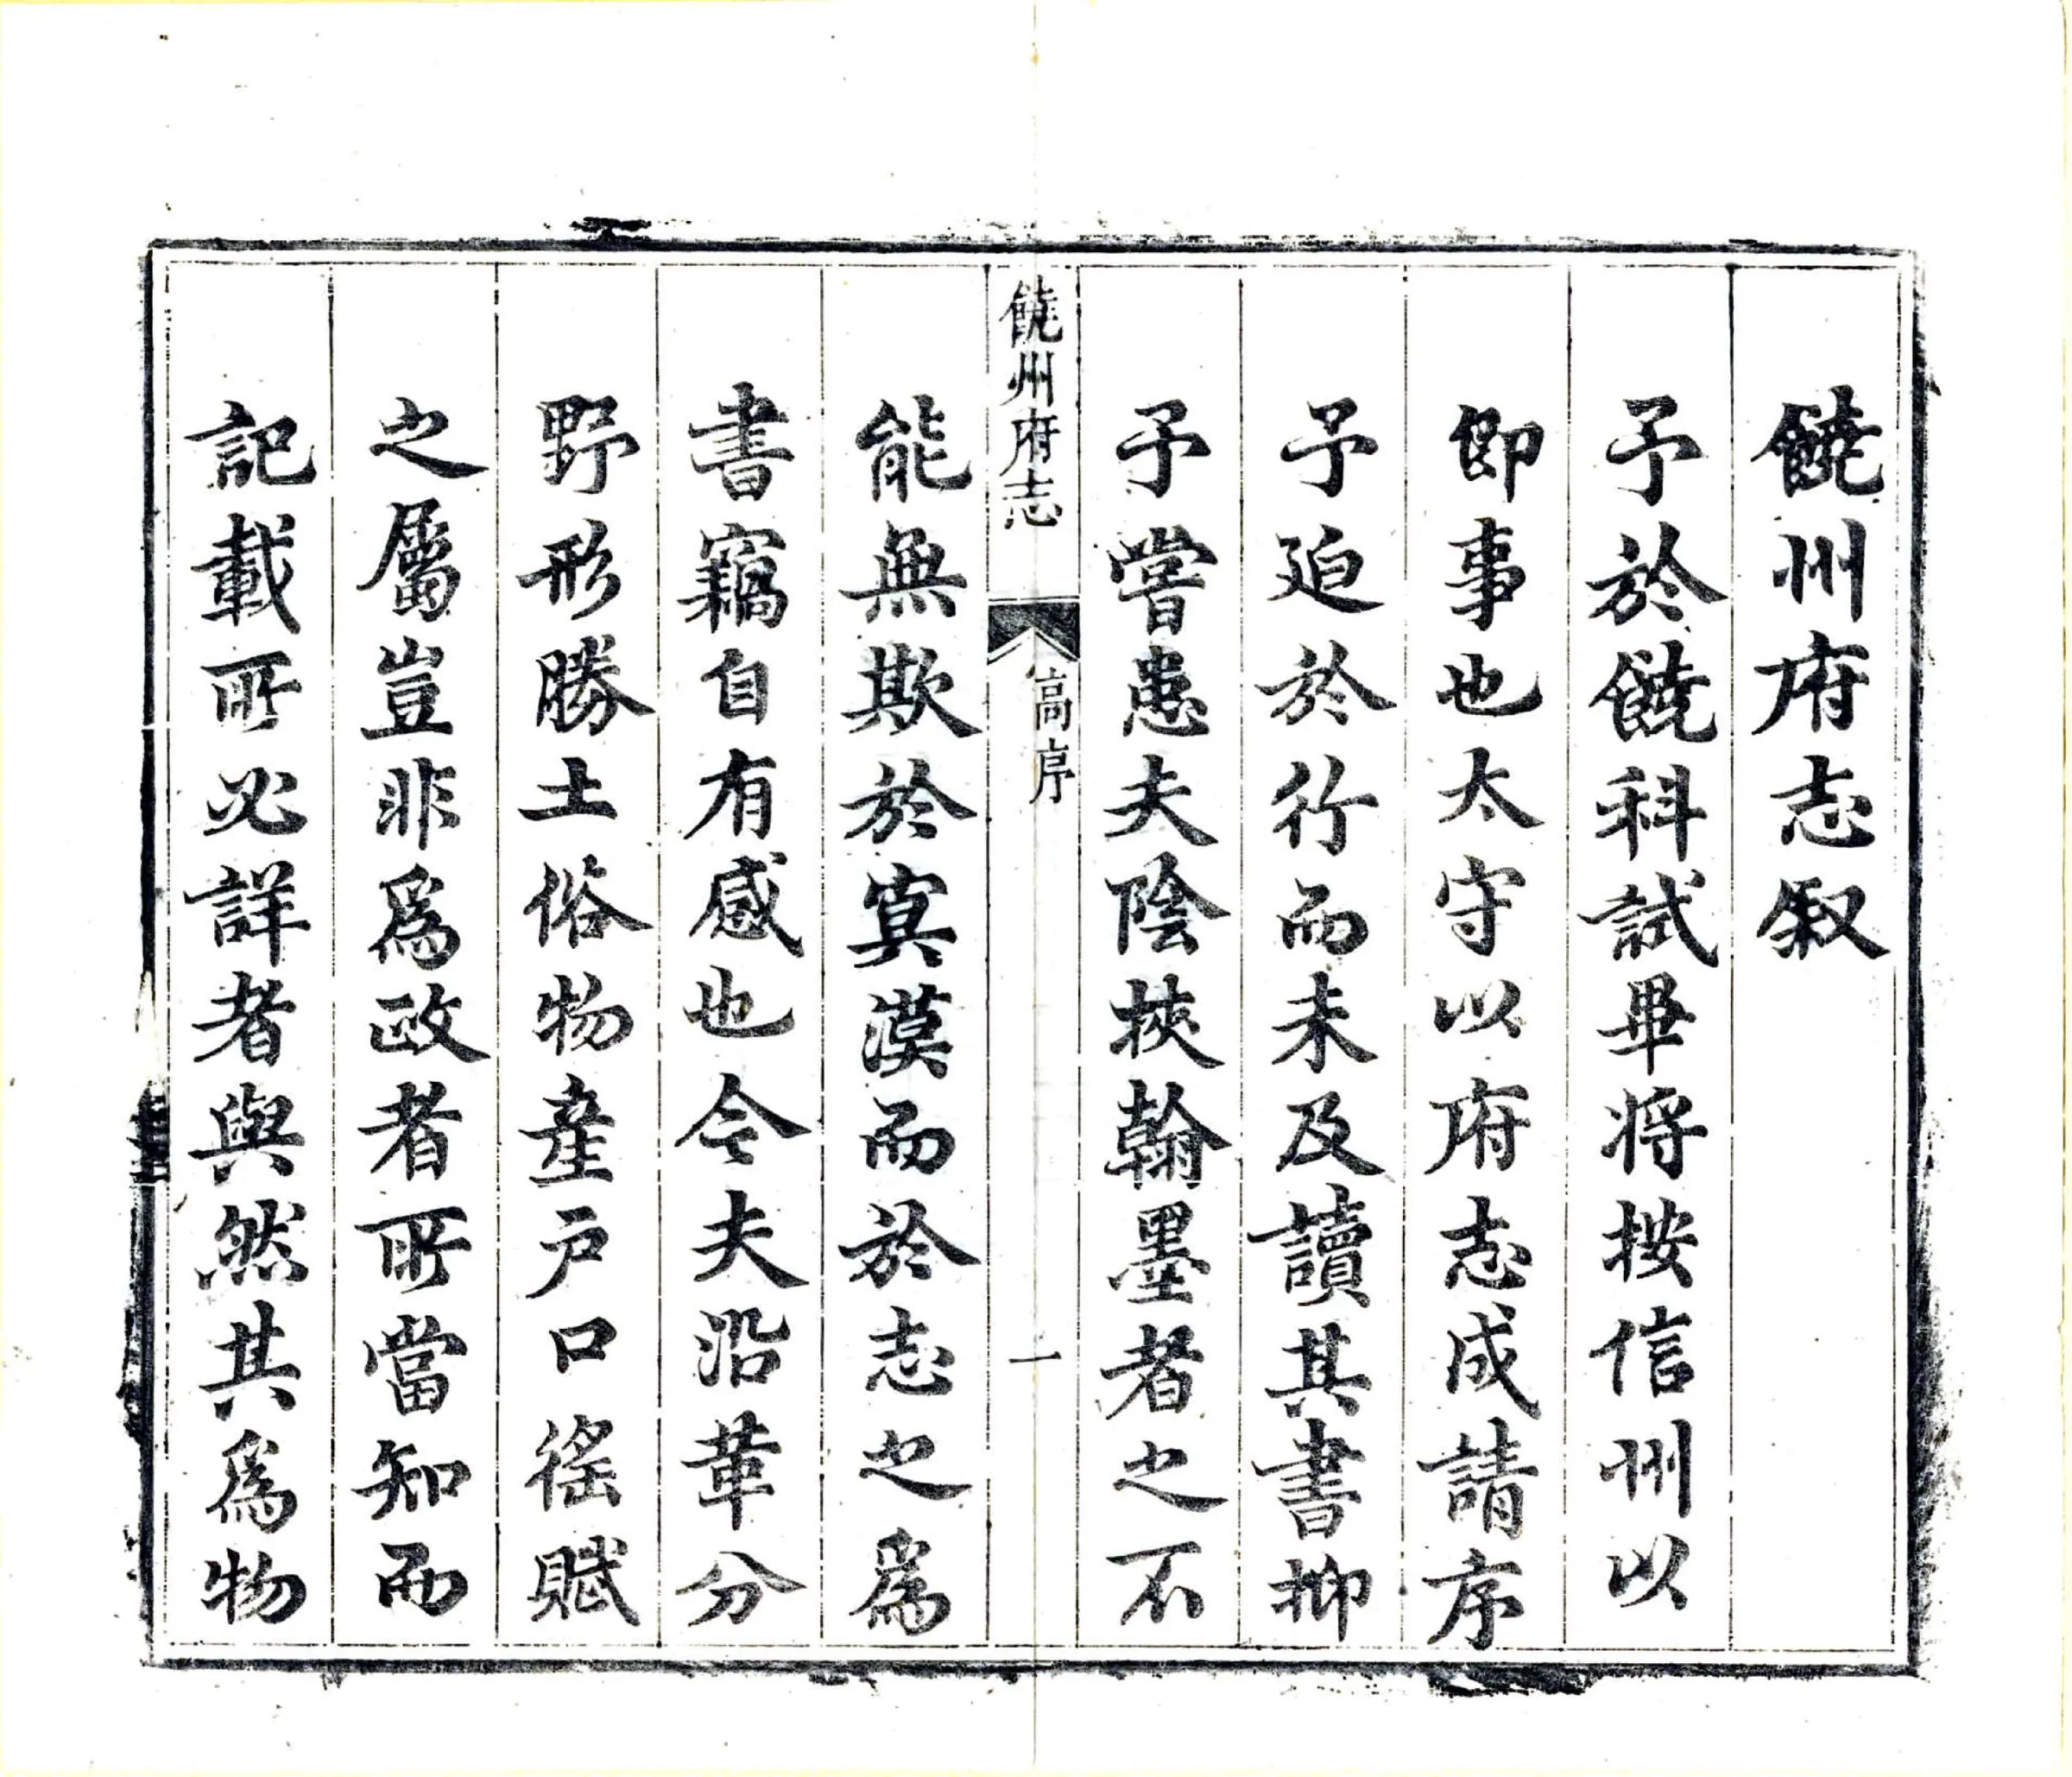 饒州府志叙
予於饒科試畢将按信州以
即事也太守以府志成請序
予迫於行而未及讀其書抑
予嘗患夫陰挾翰墨者之不
饒州府志
高序
一
能無欺於寞漠而於志之爲
書竊自有感也今夫沿革分
野形勝土俗物產户口徭賦
之屬豈非爲政者所當知而
記載所必詳者與然其爲物